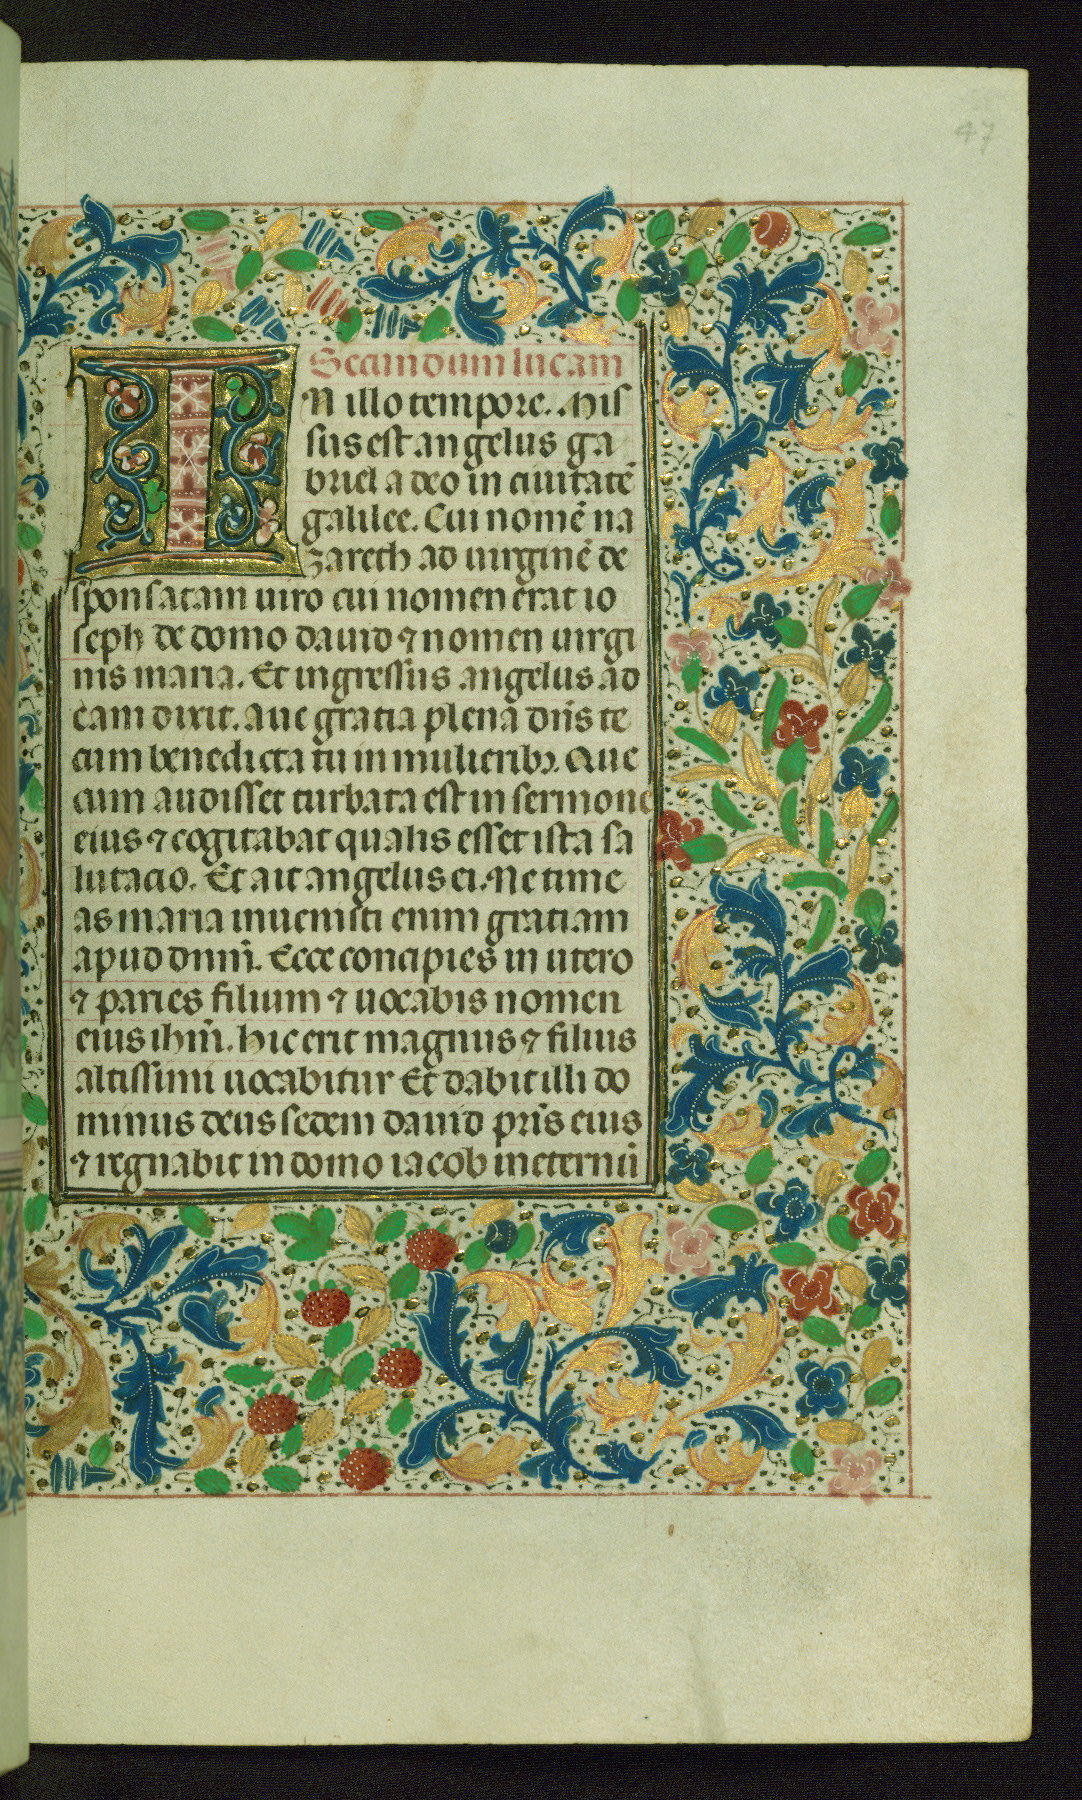 47
Secundum lucam
IN illo tempore. Mis
sus est angelus ga
briel a deo in ciuitatē
galilee. Cui nomē na
zareth ad uirginē de
sponsatam uiro cui nomen erat io
seph de domo dauid ⁊ nomen uirgi
nis maria. Et ingressus angelus ad
eam dixit. aue gratia plena dn̄s te
cum benedicta tu in mulieribꝫ. Que
cum audisset turbata est in sermone
eius ⁊ cogitabat qualis esset ista sa
lutacio. Et ait angelus ei. Ne time
as maria inuenisti enim gratiam
apud dnm̄. Ecce concipies in utero
⁊ paries filium ⁊ uocabis nomen
eius ihm̄. hic erit magnus ⁊ filius
altissimi uocabitur Et dabit illi do
minus deus sedem dauid pr̄is eius
⁊ regnabit in domo iacob in eternū